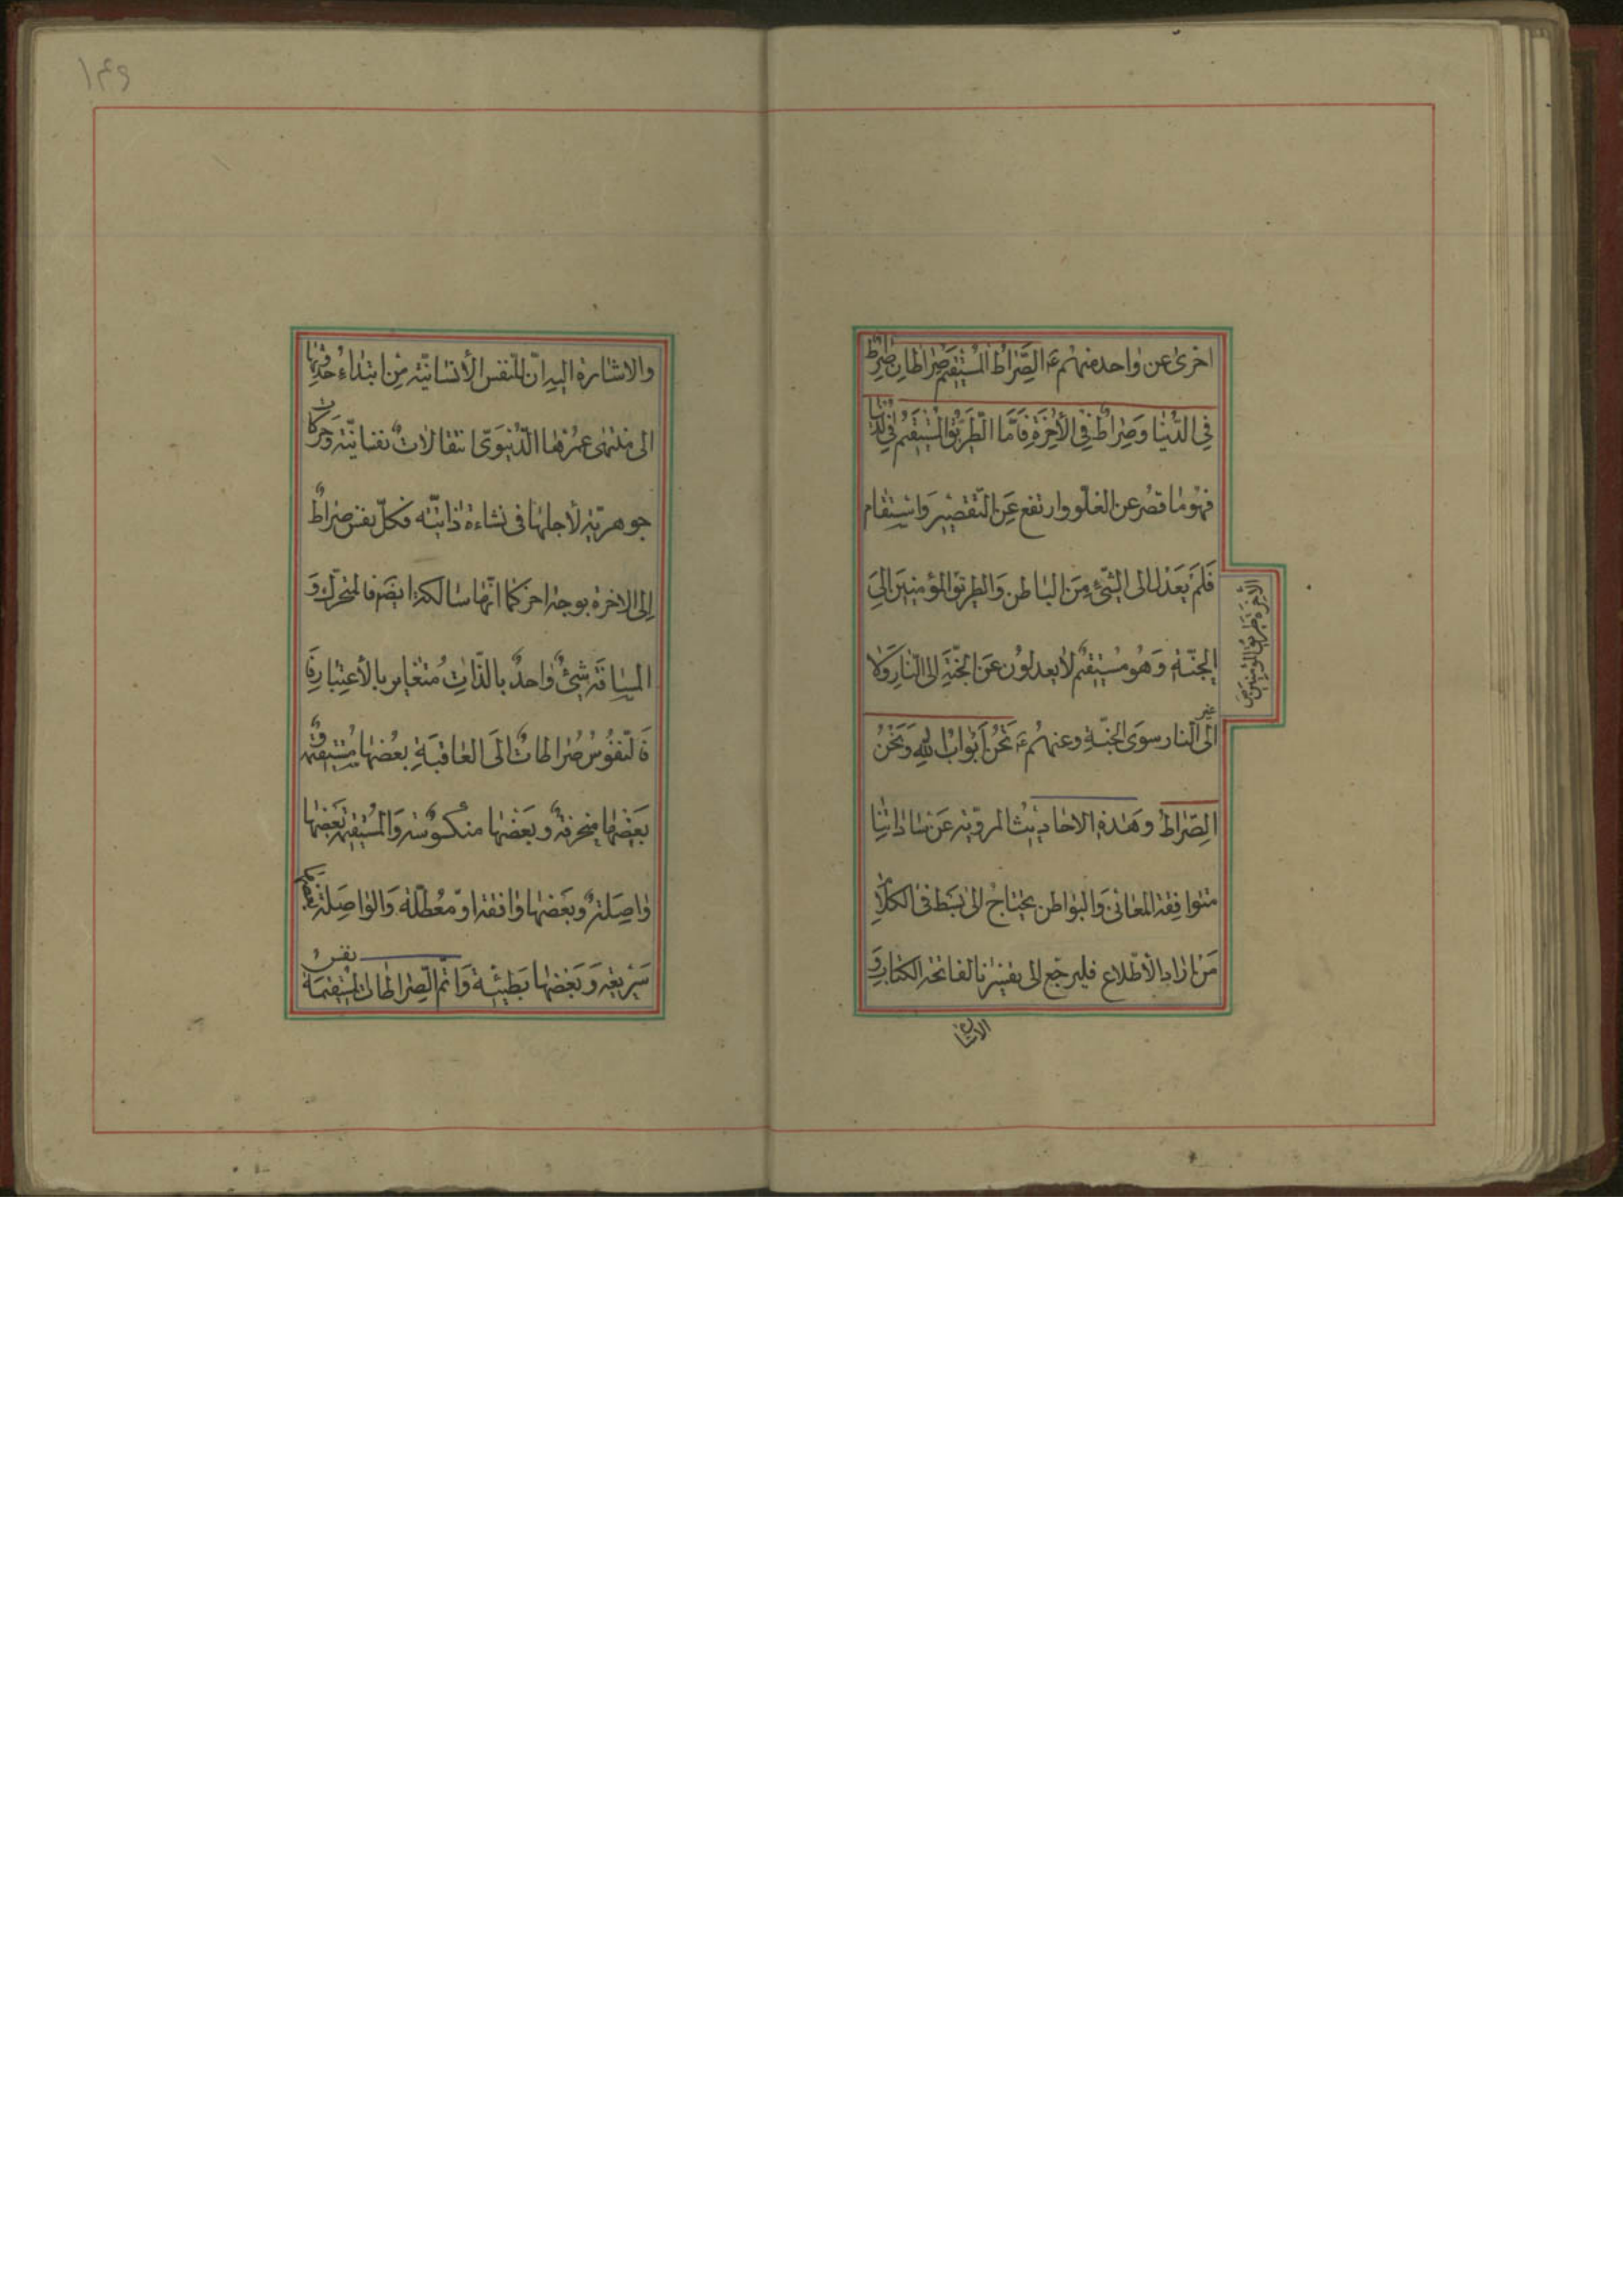 اخرى عن واحد منهم ع الصِّراطُ المُستَقيم صِراطانِ صِراطٌ
فِي الدُّنيا وَ صِراطٌ فِي الأخِرَةِ فَاَمّا الطّريقُ المُستَقيمُ فِي الدُّنيا
فهُوَ ما قصُر عن الغلّو وارتفع عَنِ التّقصير وَ استقام
فَلَم يَعدل الى الشّئ مِنَ الباطن وَ الطريق المؤمنين اِلىَ
الاخِرَة طَريق المُؤمِنين
الجنّة وَ هُو مُستقيمٌ لا يعدلوُن عَنِ الجنّةِ الى النّارِ وَ لا
الى غير النّار سوَى الجنّةِ وعنهُم ع نَحنُ اَبوابُ اللهِ وَ نَحنُ
الصّراطُ و هَذهِ الاحاديثُ المرويّة عَن ساداتنا
متوافِقة المعانى وَ البواطن يحتاج الى بسَط فى الكلامِ
مَن اراد الأطّلاع فليرجَع الى تفسيرنا لفاتحة الكتاب وَ
الاشارة
١٤٩
والاشارة اليه انّ للنفس الأنسانيّة مِن ابتداءِ حُدوثِها
الى منتهى عمرها الدّنيَوىّ انتقالاتٌ نفسانيّة وَ حَركات
جوهريّة لأجلها فى نشاءة ذاتيّه فكلّ نفس صراطٌ
اِلى الاخرة بوجه اخر كما انّها سالكة ايضَم فالمتحرّك وَ
المسافَة شئٌ واحدٌ بالذّاتِ مُتغاير بالأعتبار فَا
فَالنّفوُسُ صُراطاتٌ اِلَى العاقبَةِ بعُضها مُستقيمةٌ وَ
بَعضها منحرفةٌ و بَعضها منكوسَة وَ المستقيمة بَعضها
واصِلةٌ و بَعَضها واقفة او مُعطّلة وَ الواصِلة بَعضها
سَريعة وَ بَعَضها بَطيئَة وَ اتَمّ الصّراطات المُستقيمَة نفس